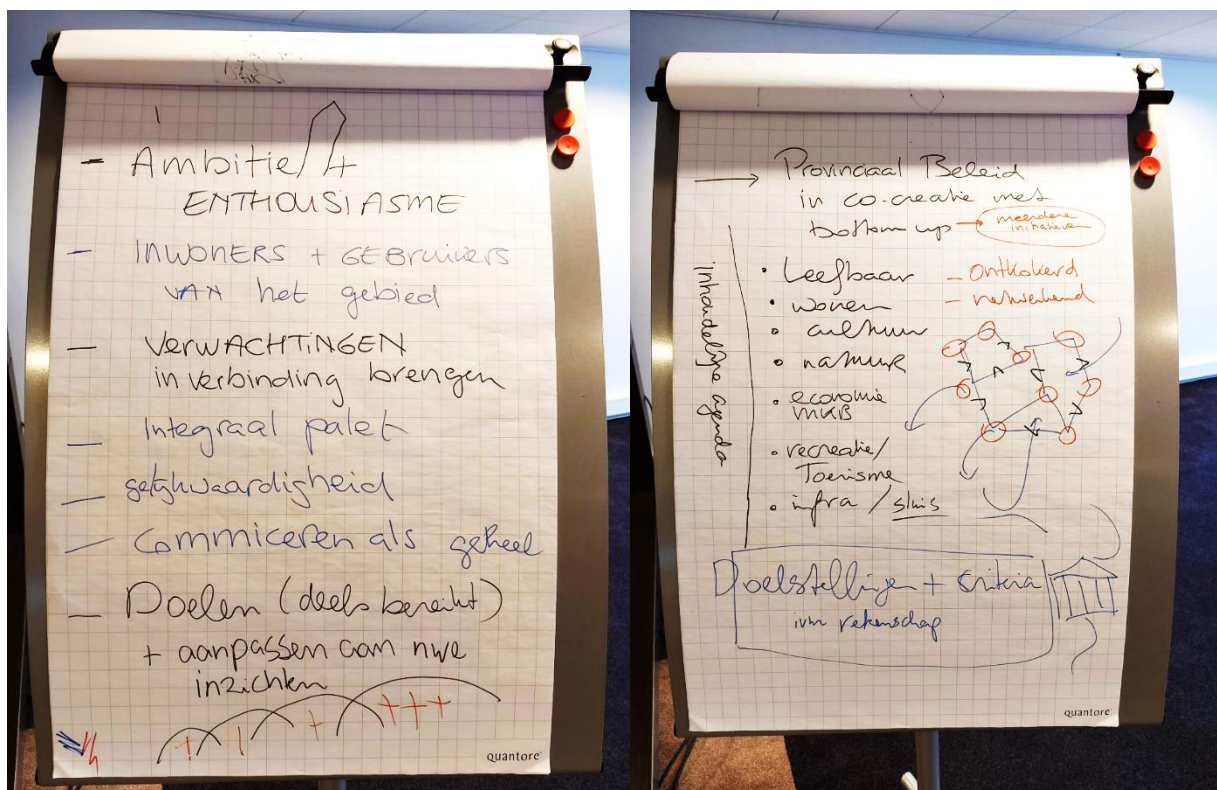 - Ambitie +
ENTHOUSIASME
- INWONERS + GEBRUIKERS
VAN het gebied
- VERWACHTINGEN
in verbinding brengen
- Integraal palet
- gelijkwaardigheid
- Commiceren als geheel
- Doelen (deels bereikt)
+ aanpassen aan nwe
inzichten
+ | + +++
quantore
→ Provinciaal Beleid
in co-creatie met
bottom up → meerdere
initiatieven
inhoudelijke agenda
• Leefbaar
• wonen
• cultuur
• natuur
• economie
MKB
• recreatie/
Toerisme
• infra / sluis
- ontkokerd
- netwerkend
Doelstellingen + criteria
ivm rekenschap
quantore